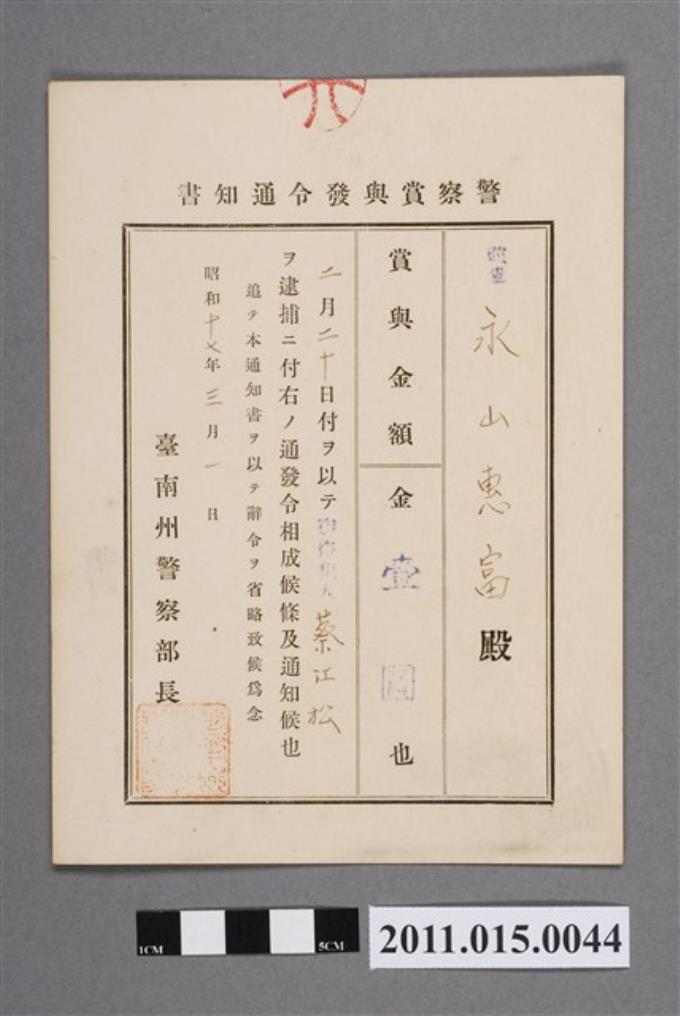 警察賞與發令通知書
巡查 永山惠富殿
賞與金額
金壹圓也
二月二十日付ヲ以テ 蔡江松
ヲ逮捕ニ付右ノ通發令相成候條及通知候也
追テ本通知書ヲ以テ辭令ヲ省略致候爲念
昭和十七年三月一日
臺南州警察部長
1CM
5CM
2011.015.0044